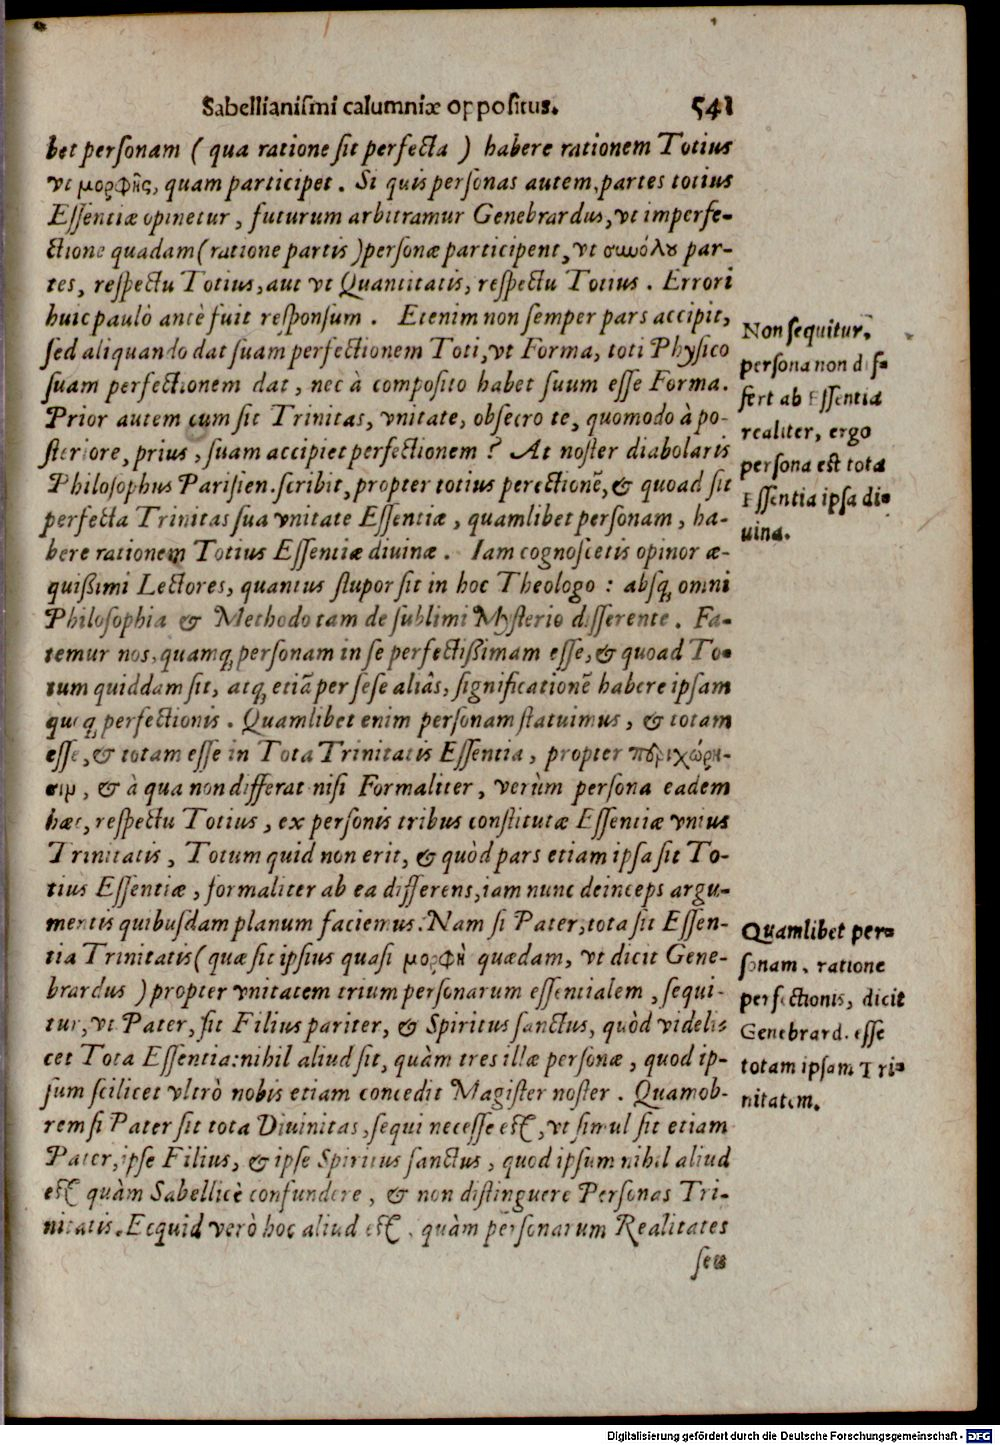 Sabellianiſmi calumniæ oppoſitus. 541
bet perſonam ( qua ratione ſit perfecta ) habere rationem Totius
vt μορφῆς, quam participet. Si quis perſonas autem, partes totius
Eſſentiæ opinetur, futurum arbitramur Genebrardus, vt imperfe-
ctione quadam (ratione partis) perſonæ participent, vt par-
tes, reſpectu Totius, aut vt Quantitatis, reſpectu Totius. Errori
huic paulò antè fuit reſponſum. Etenim non ſemper pars accipit,
ſed aliquando dat ſuam perfectionem Toti, vt Forma, toti Phyſico
ſuam perfectionem dat, nec à compoſito habet ſuum eſſe Forma.
Prior autem cum ſit Trinitas, vnitate, obſecro te, quomodo à po-
ſteriore, prius, ſuam accipiet perfectionem? At noſter diabolaris
Philoſophus Pariſien. ſcribit, propter totius perectionē, & quoad ſit
perfecta Trinitas ſua vnitate Eſſentiæ, quamlibet perſonam, ha-
bere rationem Totius Eſſentiæ diuinæ. Iam cognoſcetis opinor æ-
quißimi Lectores, quantus ſtupor ſit in hoc Theologo: abſq́ omni
Philoſophia & Methodo tam de ſublimi Myſterio diſſerente. Fa-
temur nos, quamq́ perſonam in ſe perfectißimam eſſe, & quoad To-
tum quiddam ſit, atq́ etiā per ſeſe aliâs, ſignificationē habere ipſam
quoq́ perfectionis. Quamlibet enim perſonam ſtatuimus, & totam
eſſe, & totam eſſe in Tota Trinitatis Eſſentia, propter περιχώρη-
σιμ, & à qua non differat niſi Formaliter, verùm perſona eadem
hæc, reſpectu Totius, ex perſonis tribus conſtitutæ Eſſentiæ vnius
Trinitatis, Totum quid non erit, & quòd pars etiam ipſa ſit To-
tius Eſſentiæ, formaliter ab ea differens, iam nunc deinceps argu-
mentis quibuſdam planum faciemus. Nam ſi Pater, tota ſit Eſſen-
tia Trinitatis (quæ ſit ipſius quaſi μορφὴ quædam, vt dicit Gene-
brardus ) propter vnitatem trium perſonarum eſſentialem, ſequi-
tur, vt Pater, ſit Filius pariter, & Spiritus ſanctus, quòd videli-
cet Tota Eſſentia: nihil aliud ſit, quàm tres illæ perſonæ, quod ip-
ſum ſcilicet vltrò nobis etiam concedit Magiſter noſter. Quamob-
rem ſi Pater ſit tota Diuinitas, ſequi neceſſe eſt, vt ſimul ſit etiam
Pater, ipſe Filius, & ipſe Spiritus ſanctus, quod ipſum nihil aliud
eſt quàm Sabellicè confundere, & non diſtinguere Perſonas Tri-
nitatis. Ecquid verò hoc aliud eſt, quàm perſonarum Realitates
ſeu
Non ſequitur,
perſona non dif-
fert ab Eſſentia
realiter, ergo
perſona est tota
Eſſentia ipſa di-
uina.
Quamlibet per-
ſonam, ratione
perfectionis, dicit
Genebrard. eſſe
totam ipſam Tri-
nitatem.
Digitalisierung gefördert durch die Deutsche Forschungsgemeinschaft - DFG